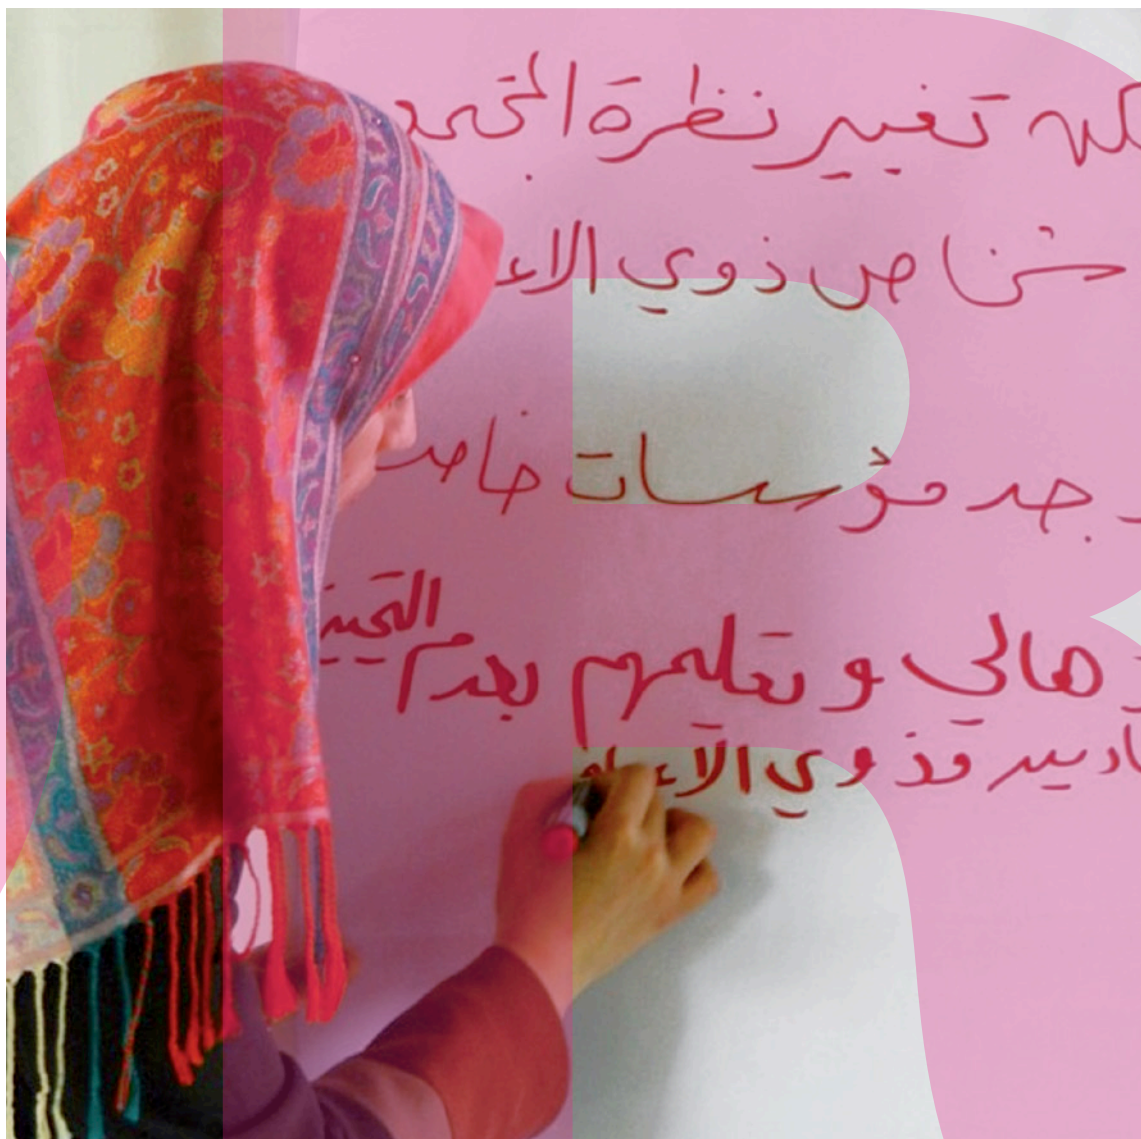 يمكن تغيير نظرة المجتمع
شخاص ذوي الاع
جد مؤسسات خاصة
هالي و تعليمهم بعدم
ذوي الاعا